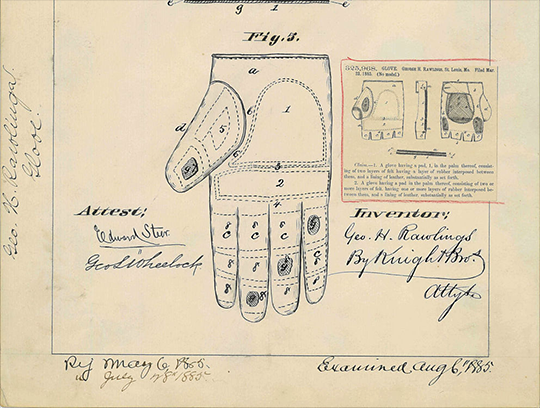 e g 1 e
Fig. 3.
325,968. GLOVE. GEORGE H. RAWLINGS, St. Louis, Mo. Filed Mar. 25, 1885. (No model.)
Claim.—1. A glove having a pad, 1, in the palm thereof, consisting of two layers of felt having a layer of rubber interposed between them, and a lining of leather, substantially as set forth.
2. A glove having a pad in the palm thereof, consisting of two or more layers of felt, having one or more layers of rubber interposed between them, and a lining of leather, substantially as set forth.
a
1
d
b
5
6
3
2
4
8 8 8
c c c
8 8 8 c
8 8 8 8
Attest;
Edward Steer.
Geo. L. Wheelock
Inventor,
Geo. H. Rawlings
By Knight Bros.
Attys
Geo H. Rawlings
Glove
Rej May 6, 1885.
" July 28 1885
Examined Aug 6" 1885.